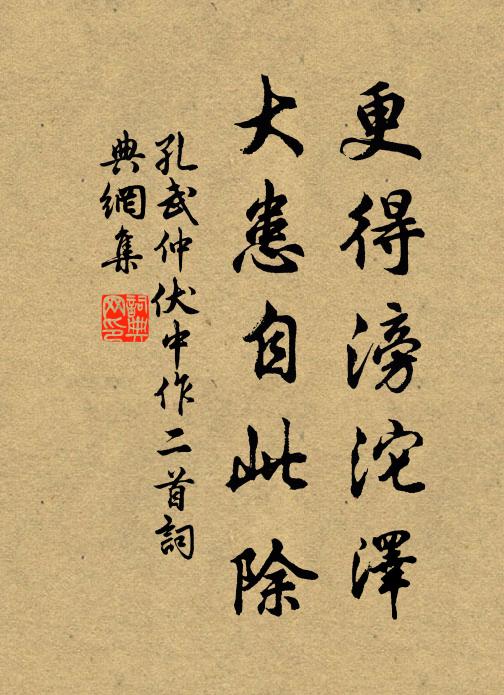 更得滂沱澤
大患自此除
孔武仲伏中作二首詞
典網集
詞典
网印